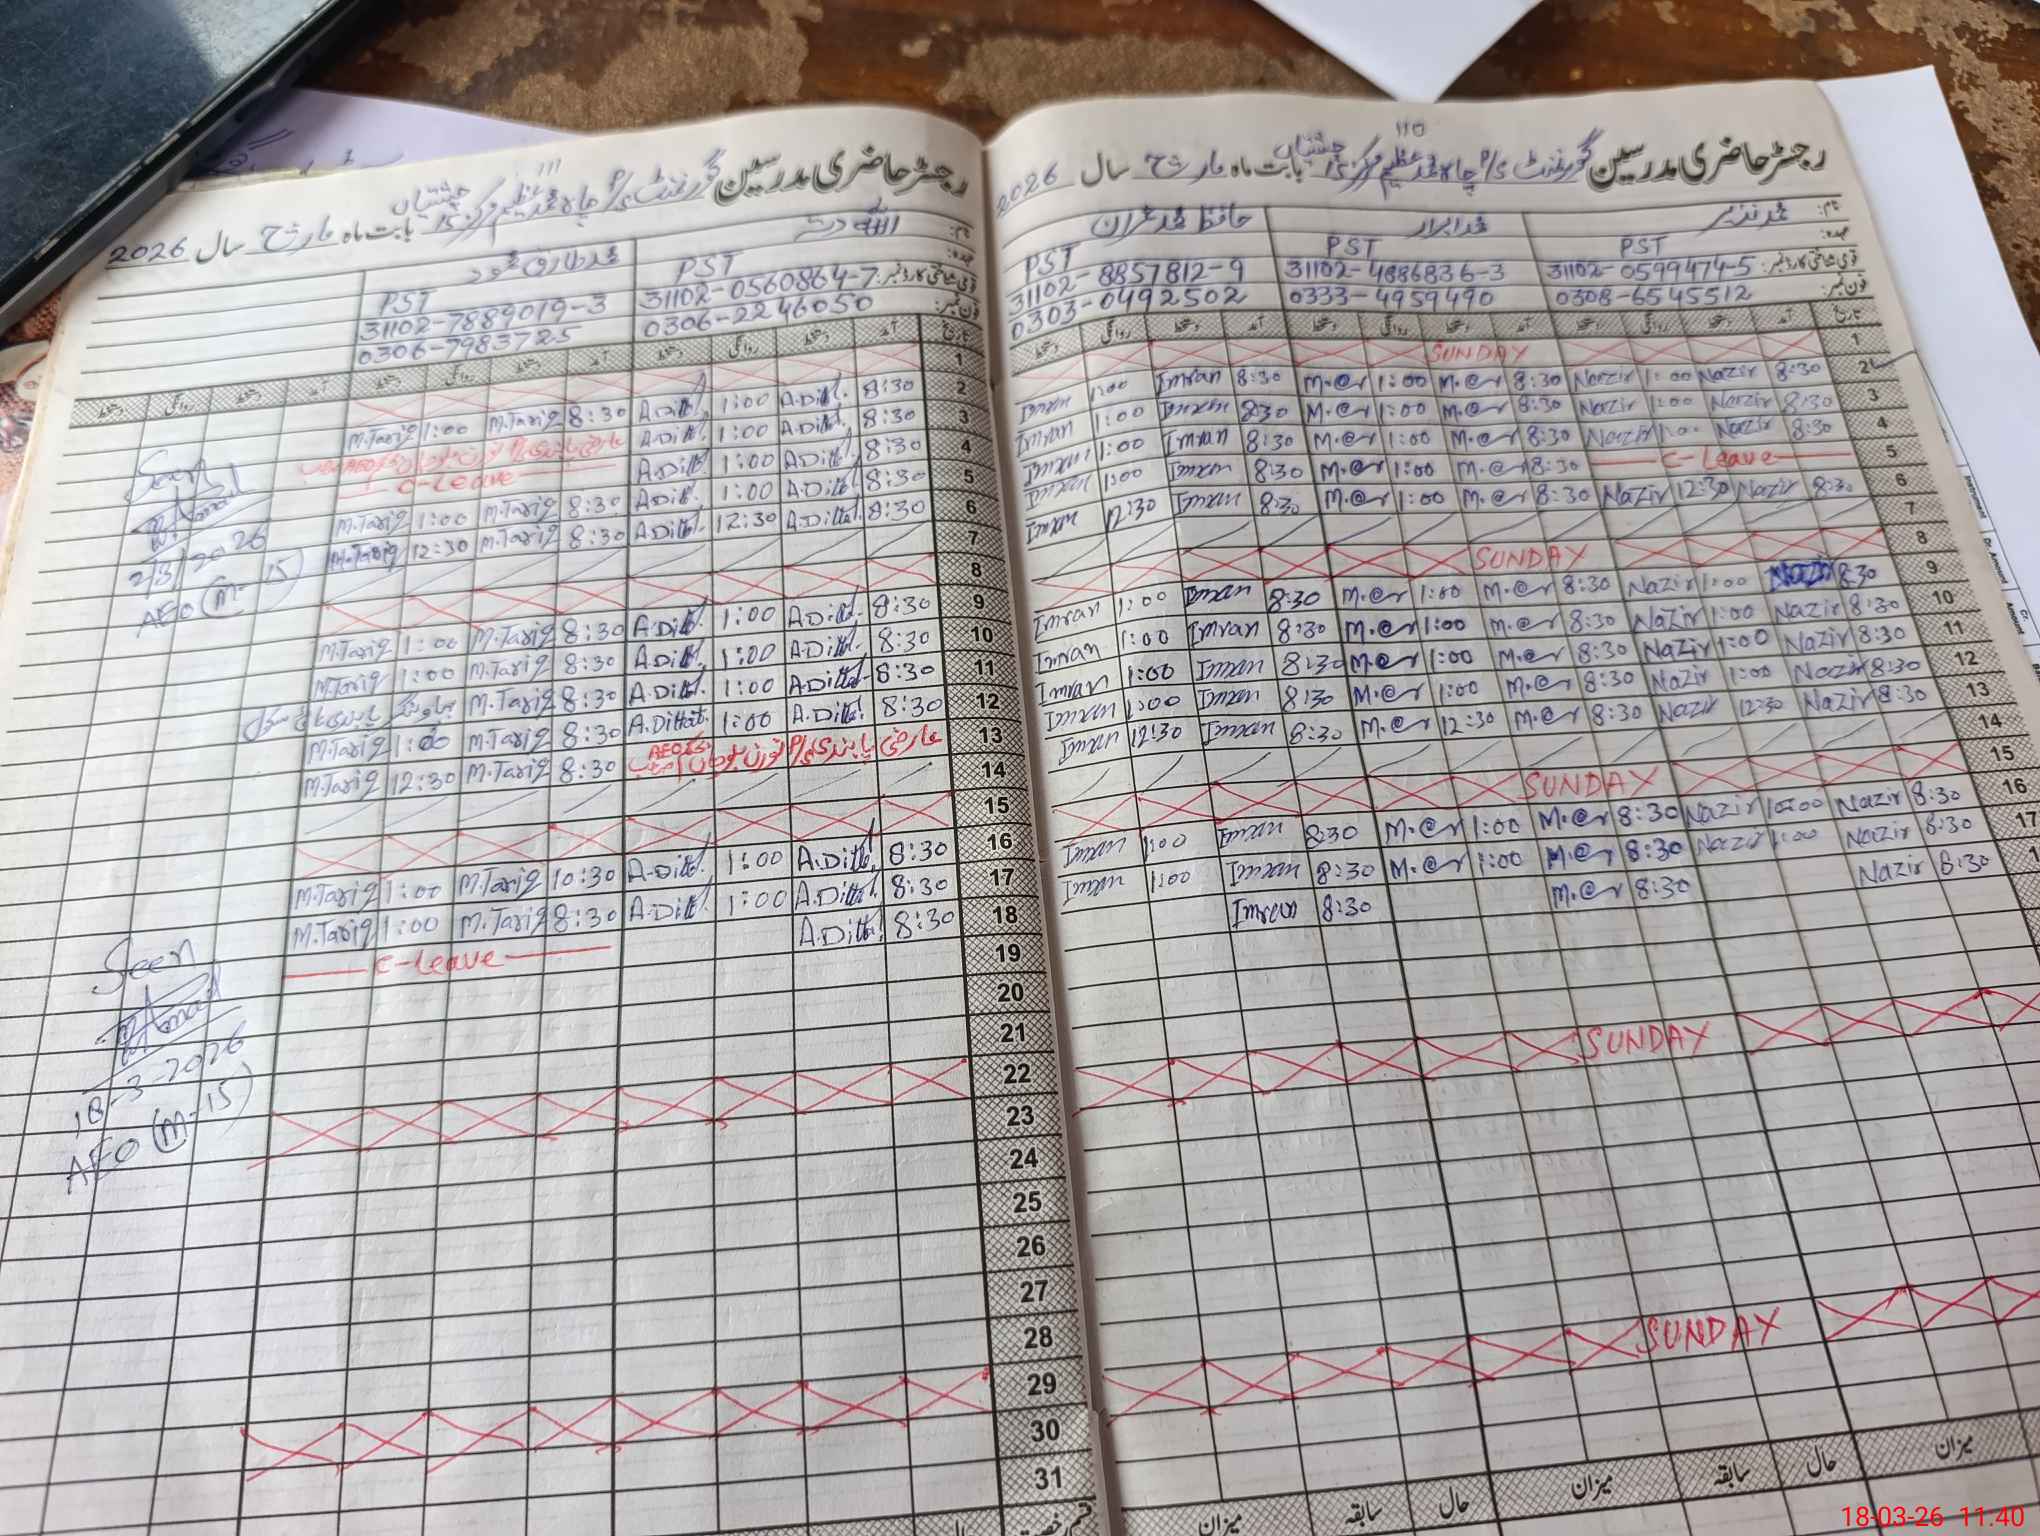 رجسٹر حاضری مدرسین گورنمنٹ P/S چاہ محمد عظیم مرکز 15 چشتیاں بابت ماہ مارچ سال 2026
110
نام: محمد نذیر محمد ابرار حافظ محمد عمران
عہدہ: PST PST PST
قومی شناختی کارڈ نمبر: 31102-0599474-5 31102-4886836-3 31102-8857812-9
فون نمبر: 0308-6545512 0333-4959490 0303-0492502
تاریخ آمد دستخط روانگی دستخط آمد دستخط روانگی دستخط آمد دستخط روانگی دستخط
1 SUNDAY
2 8:30 Nazir 1:00 Nazir 8:30 M.@r 1:00 M.@r 8:30 Imran 1:00 Imran
3 8:30 Nazir 1:00 Nazir 8:30 M.@r 1:00 M.@r 8:30 Imran 1:00 Imran
4 8:30 Nazir 1:00 Nazir 8:30 M.@r 1:00 M.@r 8:30 Imran 1:00 Imran
5 C-Leave 8:30 M.@r 1:00 M.@r 8:30 Imran 1:00 Imran
6 8:30 Nazir 12:30 Nazir 8:30 M.@r 1:00 M.@r 8:30 Imran 12:30 Imran
7
8 SUNDAY
9 8:30 Nazir 1:00 Nazir 8:30 M.@r 1:00 M.@r 8:30 Imran 1:00 Imran
10 8:30 Nazir 1:00 Nazir 8:30 M.@r 1:00 M.@r 8:30 Imran 1:00 Imran
11 8:30 Nazir 1:00 Nazir 8:30 M.@r 1:00 M.@r 8:30 Imran 1:00 Imran
12 8:30 Nazir 1:00 Nazir 8:30 M.@r 1:00 M.@r 8:30 Imran 1:00 Imran
13 8:30 Nazir 12:30 Nazir 8:30 M.@r 12:30 M.@r 8:30 Imran 12:30 Imran
14
15 SUNDAY
16 8:30 Nazir 10:00 Nazir 8:30 M.@r 1:00 M.@r 8:30 Imran 1:00 Imran
17 8:30 Nazir 1:00 Nazir 8:30 M.@r 1:00 M.@r 8:30 Imran 1:00 Imran
8:30 Nazir 8:30 M.@r 8:30 Imran
SUNDAY
SUNDAY
میزان حال سابقہ میزان حال سابقہ میزان
رجسٹر حاضری مدرسین گورنمنٹ P/S چاہ محمد عظیم مرکز 15 چشتیاں بابت ماہ مارچ سال 2026
111
نام: اللہ دتہ محمد طارق محمود
عہدہ: PST PST
قومی شناختی کارڈ نمبر: 31102-0560864-7 31102-7889019-3
فون نمبر: 0306-2246050 0306-7983725
تاریخ آمد دستخط روانگی دستخط آمد دستخط روانگی دستخط آمد دستخط روانگی دستخط
1
2 8:30 A.Ditta 1:00 A.Ditta 8:30 M.Tariq 1:00 M.Tariq
3 8:30 A.Ditta 1:00 A.Ditta عارضی پابندی P/S
4 8:30 A.Ditta 1:00 A.Ditta C-Leave
5 8:30 A.Ditta 1:00 A.Ditta 8:30 M.Tariq 1:00 M.Tariq
6 8:30 A.Ditta 12:30 A.Ditta 8:30 M.Tariq 12:30 M.Tariq
7
8
9 8:30 A.Ditta 1:00 A.Ditta 8:30 M.Tariq 1:00 M.Tariq
10 8:30 A.Ditta 1:00 A.Ditta 8:30 M.Tariq 1:00 M.Tariq
11 8:30 A.Ditta 1:00 A.Ditta 8:30 M.Tariq
12 8:30 A.Ditta 1:00 A.Ditta 8:30 M.Tariq 1:00 M.Tariq
13 عارضی پابندی P/S AEO 8:30 M.Tariq 12:30 M.Tariq
14
15
16 8:30 A.Ditta 1:00 A.Ditta 10:30 M.Tariq 1:00 M.Tariq
17 8:30 A.Ditta 1:00 A.Ditta 8:30 M.Tariq 1:00 M.Tariq
18 8:30 A.Ditta C-Leave
19
20
21
22
23
24
25
26
27
28
29
30
31
Seen
2/3/2026
AEO (M-15)
Seen
18-3-2026
AEO (M-15)
18-03-26 11.40